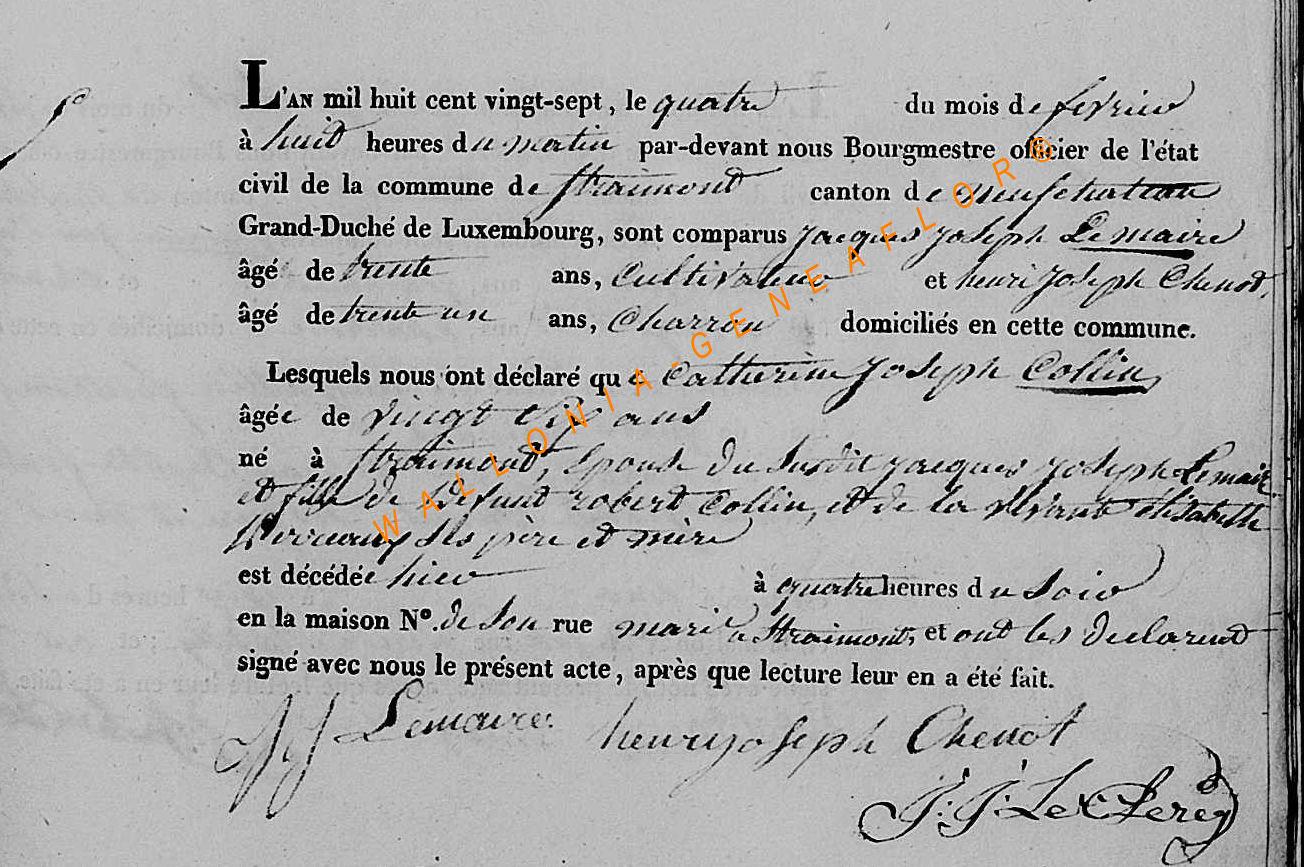 L'AN mil huit cent vingt-sept, le quatre du mois de fevrier
à huit heures du matin par-devant nous Bourgmestre officier de l'état
civil de la commune de Straimont canton de neufchateau
Grand-Duché de Luxembourg, sont comparus jacques joseph Lemaire
âgé de trente ans, Cultivateur et henri joseph Chenot,
âgé de trente un ans, Charron domiciliés en cette commune.
Lesquels nous ont déclaré que Catherine joseph Collin,
âgée de vingt six ans
né à Straimont, Epouse du Susdit jacques joseph Lemaire
et fille de Defunt robert Collin, et de la vivante élisabeth
ses père et mère
est décédée hier à quatre heures du soir
en la maison N°. de son rue mari a Straimont, et ont les declarent
signé avec nous le présent acte, après que lecture leur en a été fait.
JJ Lemaire henry joseph Chenot
J: J: Le Clereq
WALLONIA-GENEAFLOR®